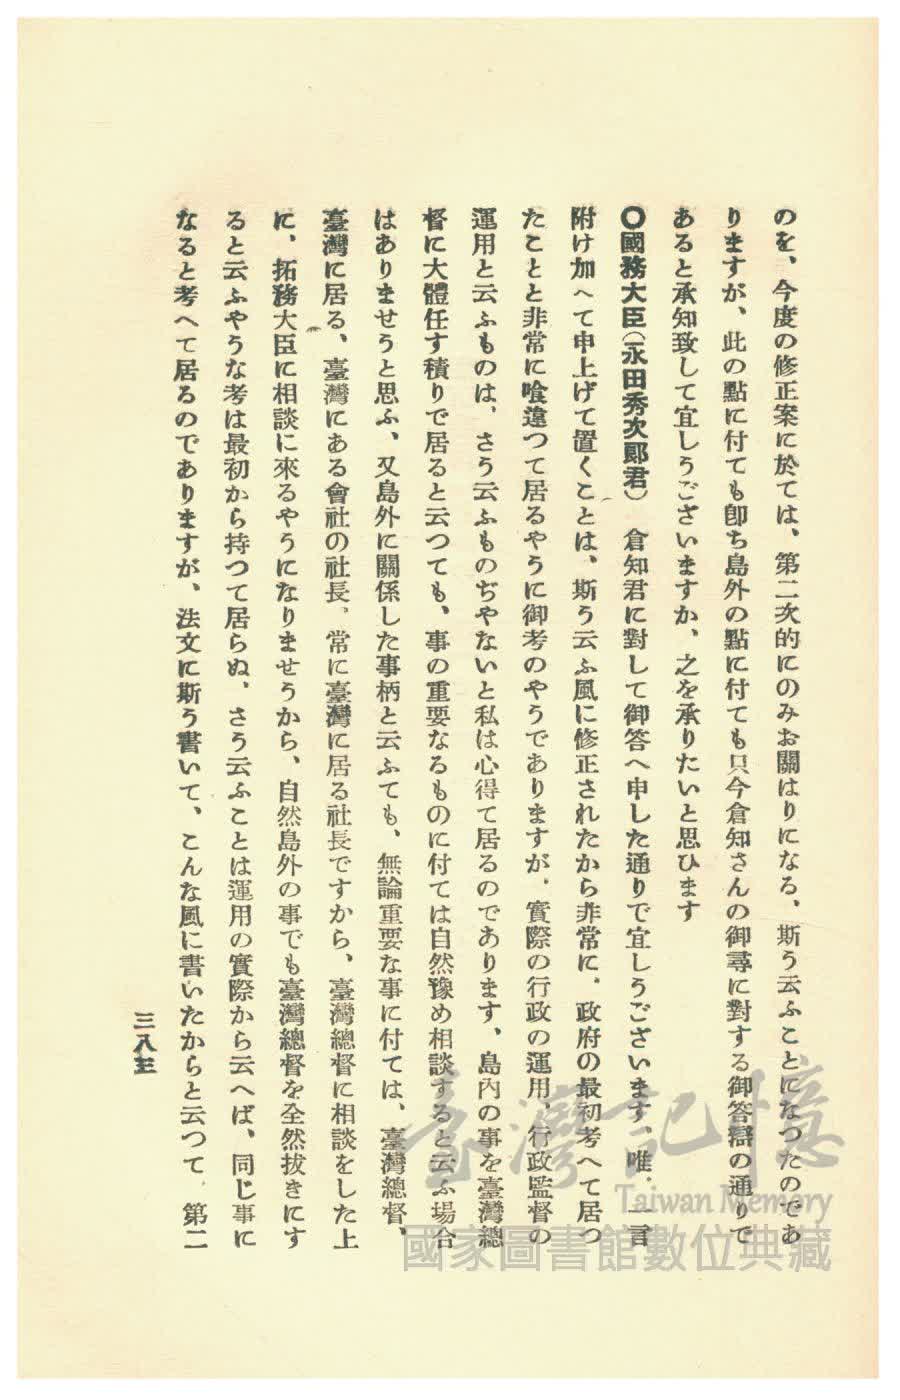 のを、今度の修正案に於ては、第二次的にのみお關はりになる、斯う云ふことになつたのであ
りますが、此の點に付ても卽ち島外の點に付ても只今倉知さんの御尋に對する御答辯の通りで
あると承知致して宜しうございますか、之を承りたいと思ひます
〇國務大臣(永田秀次郞君)　倉知君に對して御答へ申した通りで宜しうございます、唯、一言
附け加へて申上げて置くことは、斯う云ふ風に修正されたから非常に、政府の最初考へて居つ
たことと非常に喰違つて居るやうに御考のやうでありますが、實際の行政の運用、行政監督の
運用と云ふものは、さう云ふものぢやないと私は心得て居るのであります、島內の事を臺灣總
督に大體任す積りで居ると云つても、事の重要なるものに付ては自然豫め相談すると云ふ場合
はありませうと思ふ、又島外に關係した事柄と云ふても、無論重要な事に付ては、臺灣總督、
臺灣に居る、臺灣にある會社の社長、常に臺灣に居る社長ですから、臺灣總督に相談をした上
に、拓務大臣に相談に來るやうになりませうから、自然島外の事でも臺灣總督を全然拔きにす
ると云ふやうな考は最初から持つて居らぬ、さう云ふことは運用の實際から云へば、同じ事に
なると考へて居るのでありますが、法文に斯う書いて、こんな風に書いたからと云つて、第二
三八三
臺灣記憶
Taiwan Memory
國家圖書館數位典藏